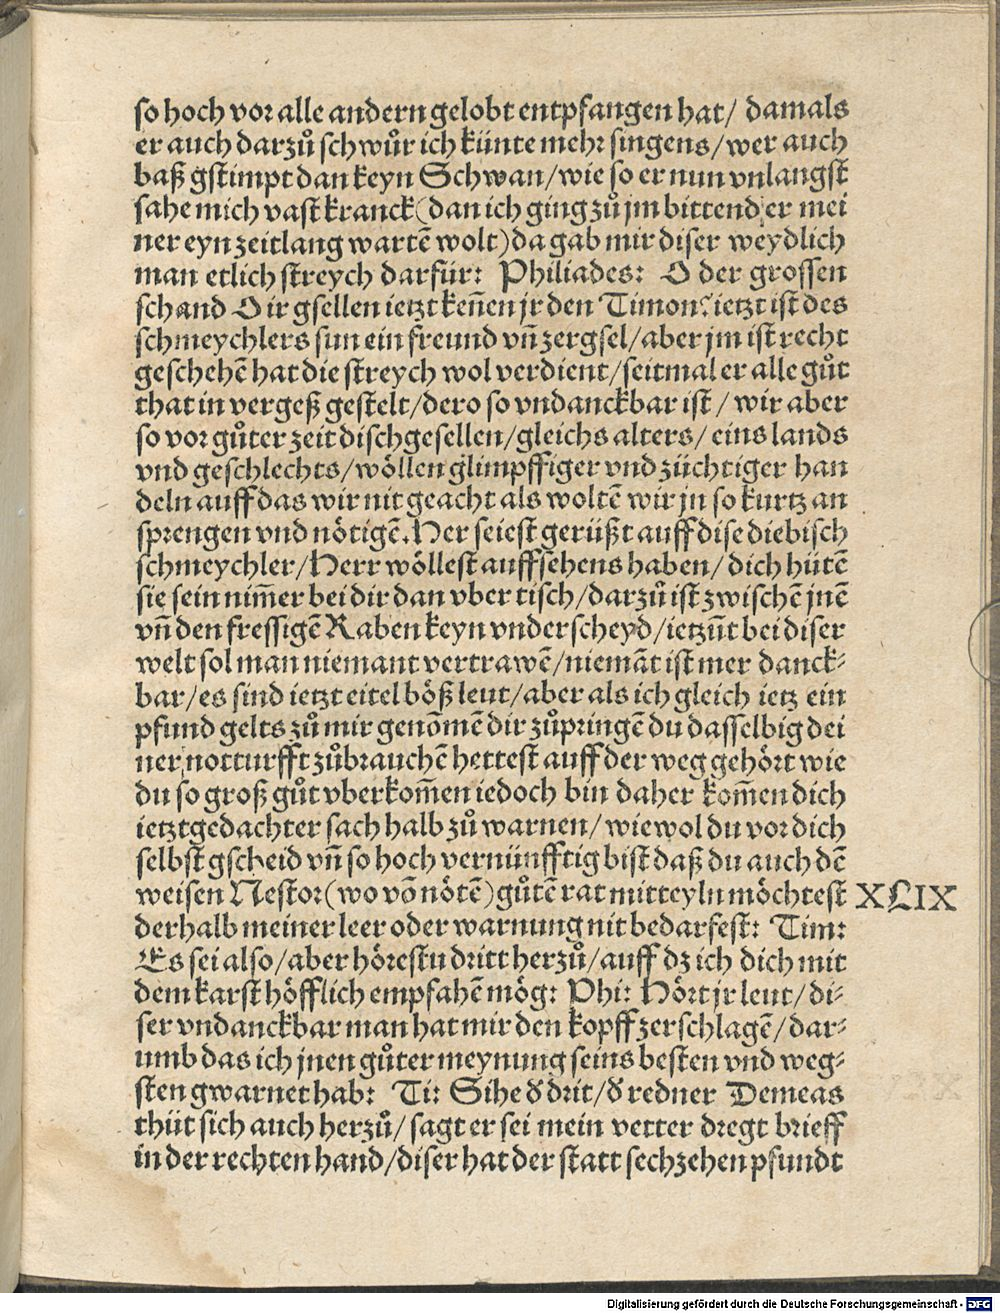 so hoch vor alle andern gelobt entpfangen hat/ damals
er auch darzů schwůr ich künte mehr singens/wer auch
baß gstimpt dan keyn Schwan/wie so er nun vnlangst
sahe mich vast kranck(dan ich ging zů jm bittend er mei
ner eyn zeitlang wartē wolt)da gab mir diser weydlich
man etlich streych darfür: Philiades: O der grossen
schand O ir gsellen ietzt keñen jr den Timon? ietzt ist des
schmeychlers sun ein freund vñ zergsel/aber jm ist recht
geschehē hat die streych wol verdient/seitmal er alle gůt
that in vergeß gestelt/dero so vndanckbar ist/ wir aber
so vor gůter zeit dischgesellen/gleichs alters/ eins lands
vnd geschlechts/wöllen glimpffiger vnd züchtiger han
deln auff das wir nit geacht als woltē wir jn so kurtz an
sprengen vnd nötigē. Her seiest gerüßt auff dise diebisch
schmeychler/Herr wöllest auffsehens haben/ dich hütē
sie sein nim̄er bei dir dan vber tisch/darzů ist zwischē jnē
vñ den fressigē Raben keyn vnderscheyd/ietzūt bei diser
welt sol man niemant vertrawē/niemāt ist mer danck⸗
bar/es sind ietzt eitel böß leut/aber als ich gleich ietz ein
pfund gelts zů mir genōmē dir zůpringē du dasselbig dei
ner notturfft zůbrauchē hettest auff der weg gehört wie
du so groß gůt vberkom̄en iedoch bin daher kom̄en dich
ietztgedachter sach halb zů warnen/ wiewol du vor dich
selbst gscheid vñ so hoch vernünfftig bist daß du auch dē
weisen Nestor(wo vō nötē)gůtē rat mitteyln möchtest XLIX
derhalb meiner leer oder warnung nit bedarfest: Tim:
Es sei also/aber hörestu dritt herzů/auff dz ich dich mit
dem karst höfflich empfahē mög: Phi: Hört jr leut/ di⸗
ser vndanckbar man hat mir den kopff zerschlagē/dar⸗
umb das ich jnen gůter meynung seins besten vnd weg⸗
sten gwarnet hab: Ti: Sihe d' drit/d' redner Demeas
thüt sich auch herzů/ sagt er sei mein vetter dregt brieff
in der rechten hand/diser hat der statt sechzehen pfundt
Digitalisierung gefördert durch die Deutsche Forschungsgemeinschaft - DFG